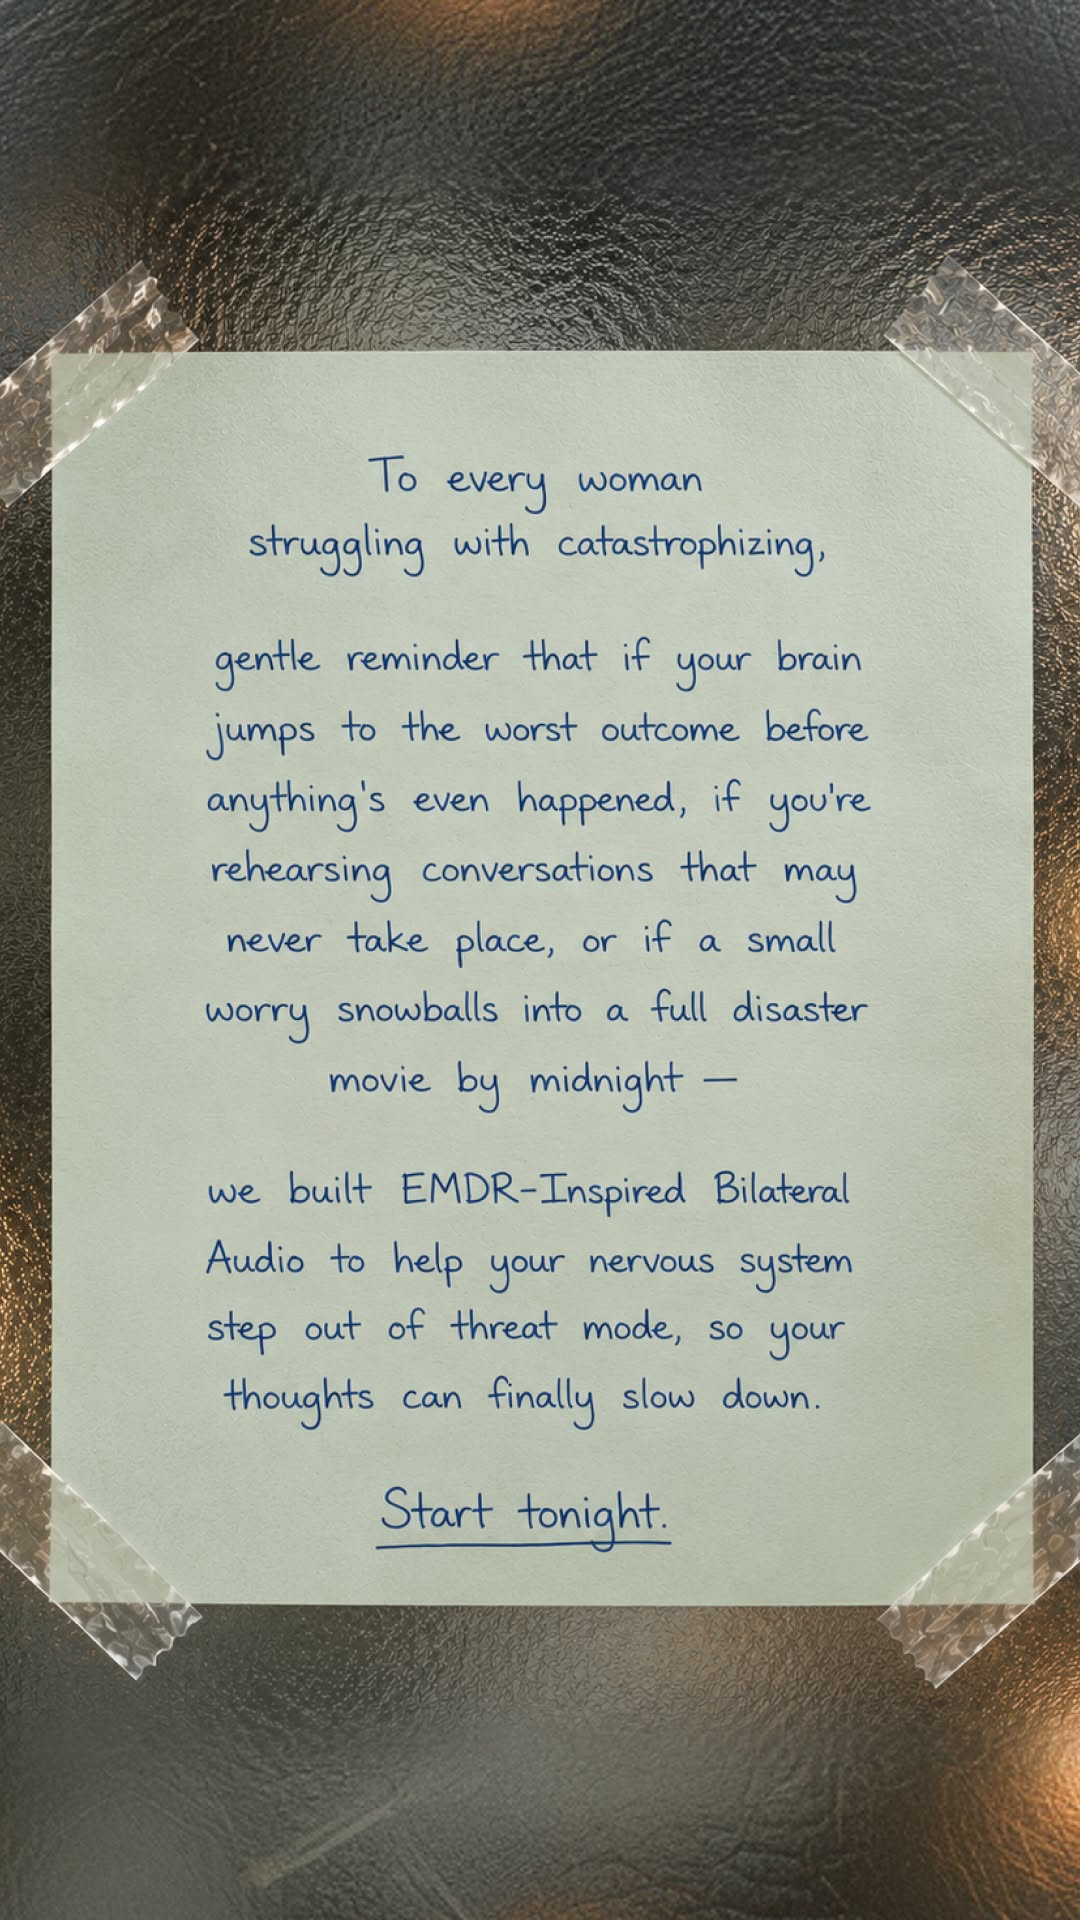 To every woman
struggling with catastrophizing,
gentle reminder that if your brain
jumps to the worst outcome before
anything's even happened, if you're
rehearsing conversations that may
never take place, or if a small
worry snowballs into a full disaster
movie by midnight —
we built EMDR-Inspired Bilateral
Audio to help your nervous system
step out of threat mode, so your
thoughts can finally slow down.
Start tonight.